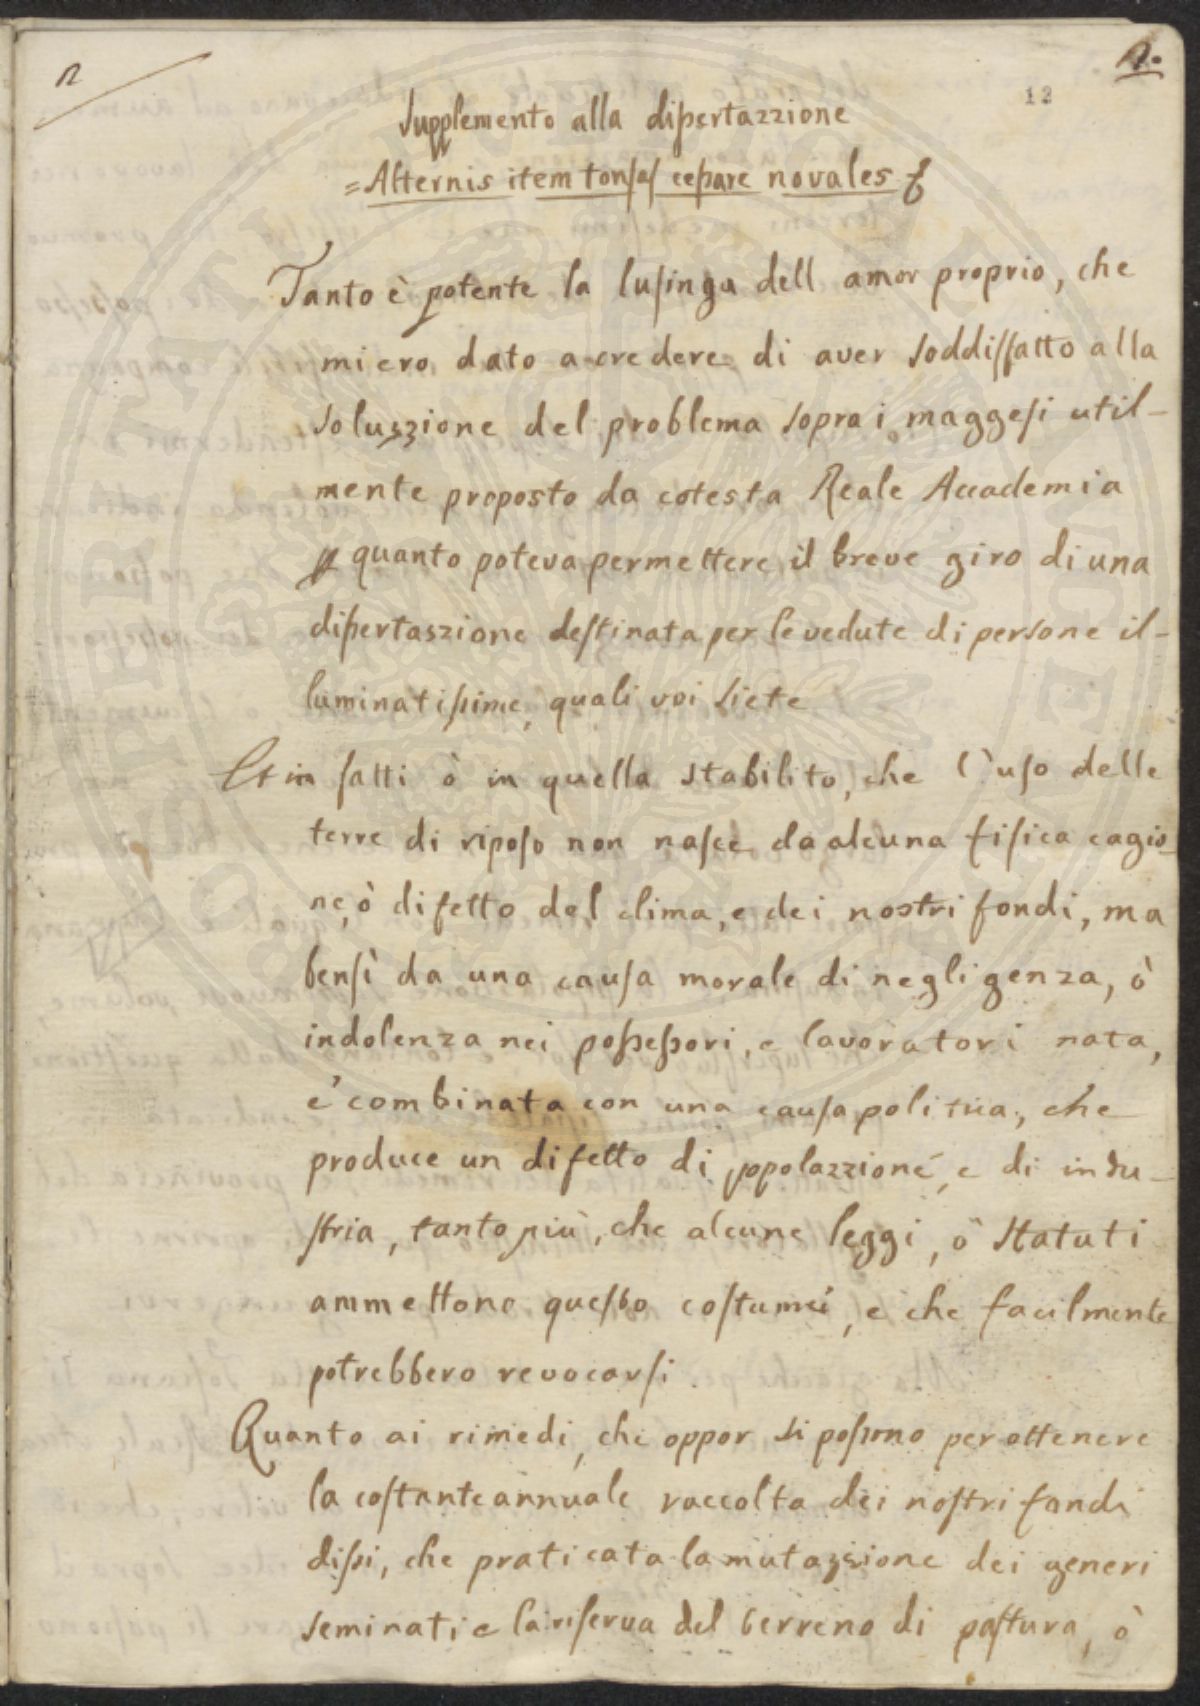 12
Supplemento alla dissertazzione
=Alternis item tonsas cessare novales
Tanto è potente la lusinga dell amor proprio, che
mi ero dato a credere di aver soddisfatto alla
soluzzione del problema sopra i maggesi util-
mente proposto da cotesta Reale Accademia
p quanto poteva permettere il breve giro di una
dissertaszione destinata per le vedute di persone il-
luminatissime, quali voi siete
Et in fatti ò in quella stabilito, che l'uso delle
terre di riposo non nasce da alcuna fisica cagio-
ne, ò difetto del clima, e dei nostri fondi, ma
bensì da una causa morale di negligenza, ò
indolenza nei possessori, e lavoratori nata,
e combinata con una causa politica, che
produce un difetto di popolazzione, e di indu-
stria, tanto più, che alcune leggi, ò statuti
ammettono questo costume, e che facilmente
potrebbero revocarsi
Quanto ai rimedi, che oppor si possono per ottenere
la costante annuale raccolta dei nostri fondi
dissi, che praticata la mutazsione dei generi
seminati e la riserva del terreno di pastura, ò